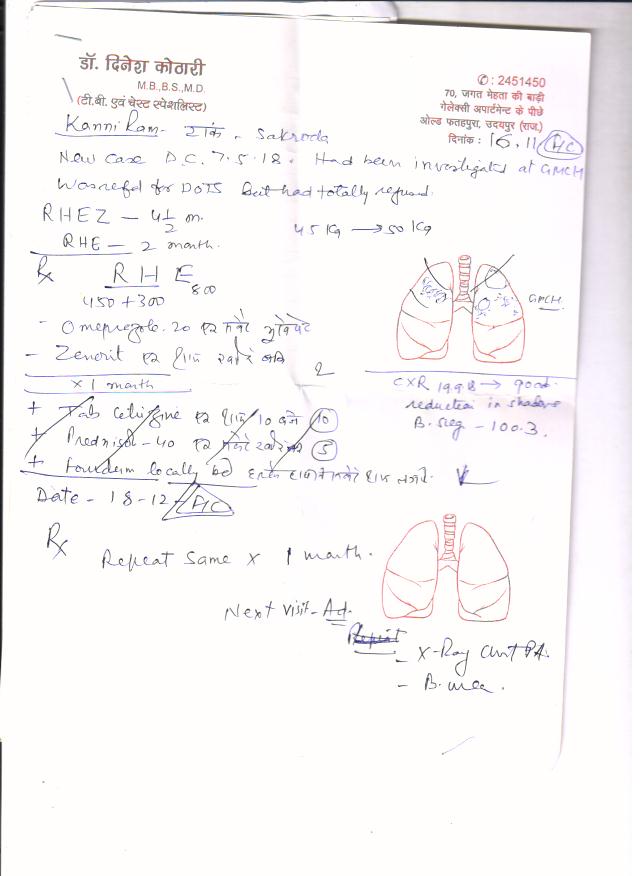 डॉ. दिनेश कोठारी
M.B.,B.S.,M.D.
(टी.बी. एवं चेस्ट स्पेशलिस्ट)
✆: 2451450
70, जगत मेहता की बाड़ी
गेलेक्सी अपार्टमेन्ट के पीछे
ओल्ड फतहपुरा, उदयपुर (राज.)
दिनांक : 16.11
Kanni Ram - Sakroda
New Case D.C. 7.5.18. Had been investigated at GMCH
Was refd for DOTS but had totally refused.
RHEZ - 4 1/2 m.
45 Kg → 50 Kg
RHE - 2 month.
Rx R H E 800
450 + 300
GMCH
- Omeprazole. 20 एक
- Zenorit एक शाम
x 1 month
CXR → good
reduction in shadows
B. sug - 100.3.
+ Tab Cetrizine एक शाम 10
+ Prednisol - 40 एक 5
+ Fourderm locally bd
Date - 18-12
Rx
Repeat Same x 1 month.
Next Visit - Ad.
Repeat
- X-Ray Chest PA.
- B. urea.